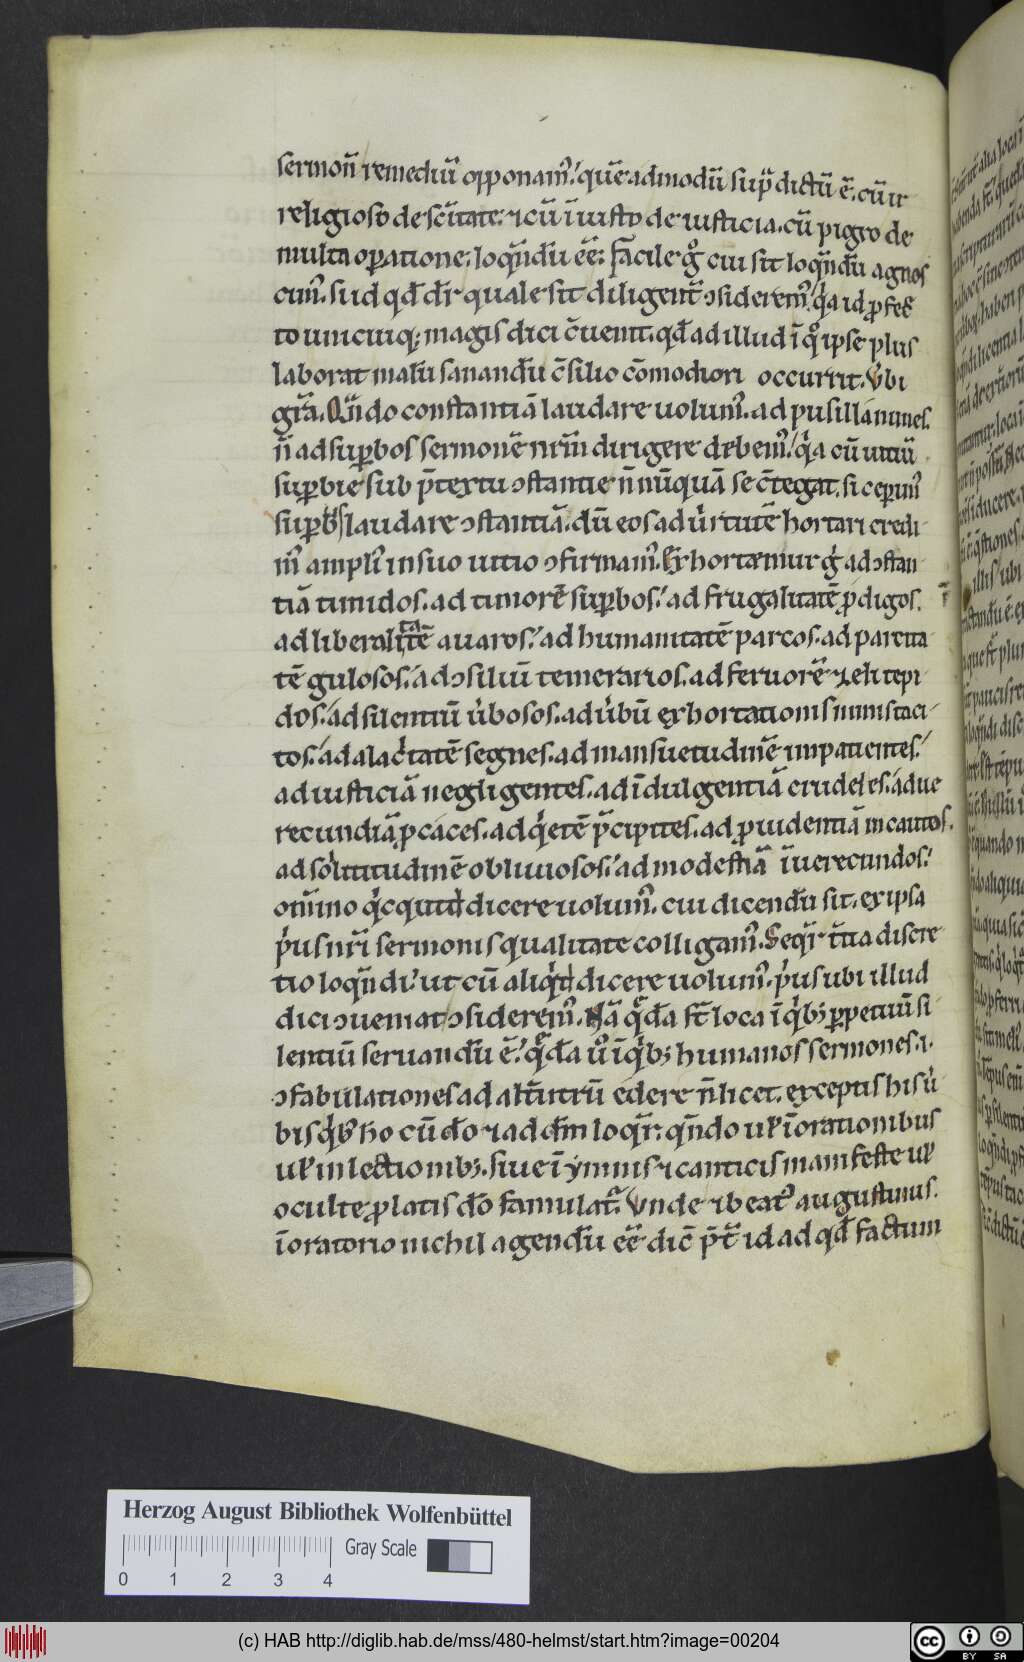 sermoñ remediū opponam᷒. quē admodū sup̄ dictū ē. cū ir
religioso de scītate. ⁊ cū īiusto de iusticia. cū pigro de
multa oꝑatione. loquēdū eē. facile gͦ cui sit loquēdū agnos
cim᷒. si id qd̄ dr̄ quale sit diligent̄ ↄsiderem᷒. qͥa id ꝓfec
to unicuiqꝫ magis dici c̄uenit. qd̄ ad illud ī qͦ ipse plus
laborat malū sanandū c̄silio cōmodiori occurrit. Vbi
grā. Qn̄do constantiā laudare uolum᷒. ad pusillanimes.
n̄ ad suꝑbos sermonē nr̄m dirigere debem᷒. qͥa cū uitiū
suꝑbie sub p̄textu ↄstantie n̄ nūquā se c̄tegat. si ceperim᷒
suꝑbis laudare ↄstantiā. dū eos ad uͥrtutē hortari credi
m᷒ ampli᷒ in suo uitio ↄfirmam᷒. Exhortemur gͦ ad ↄstan
tiā timidos. ad timorē suꝑbos. ad frugalitatē ꝓdigos.
ad liberalitatē auaros. ad humanitatē parcos. ad parcita
tē gulosos. ad ↄsiliū temerarios. ad feruorē ⁊ eli tepi
dos. ad silentiū u̓bosos. ad u̓bū exhortationis nimis taci
tos. ad alacͥtatē segnes. ad mansuetudinē impatientes.
ad iusticiā negligentes. ad īdulgentiā crudeles. ad ue
recundiā ꝓcaces. ad qͥetē p̄cipites. ad ꝓuidentiā incautos.
ad sollͥtitudinē obliuiosos. ad modestiā īuerecundos.
om̄ino qͥcquid dicere uolum᷒. cui dicendū sit. ex ipsa
pͥus nr̄i sermonis qualitate colligam᷒. Seqͥr t̄tia discre
tio loquēdi. ut cū aliqͥd dicere uolum᷒. pͥus ubi illud
dici ↄueniat ↄsiderem᷒. Nā qͣdā st̄ loca ī qͥbꝫ ꝑpetuū si
lentiū seruandū ē. qͣdā u̓o ī qͥbꝫ humanos sermones. ⁊
ↄfabulationes ad alt̄utrū edere n̄ licet. exceptis his u̓
bis qͥbꝫ ho cū dō ⁊ ad dm̄ loqͥr. qn̄do uł ī orationibus
uł in lectionibꝫ. siue ī ymnis ⁊ canticis manifeste uł
oculte ꝓlatis dō famulat᷒. Vnde ⁊ beat᷒ augustinus.
ī oratorio nichil agendū eē dic̄ p̄t̄ id ad qd̄ factum
Herzog August Bibliothek Wolfenbüttel
Gray Scale
0 1 2 3 4
(c) HAB http://diglib.hab.de/mss/480-helmst/start.htm?image=00204
cc BY SA